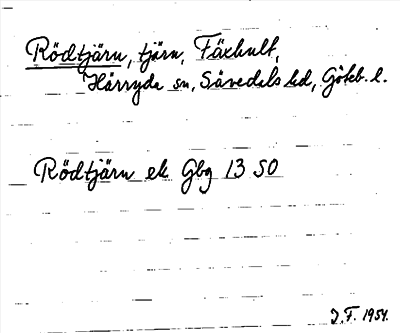 Rödtjärn, tjärn, Fäxhult,
Härryda sn, Sävedals hd, Göteb. l.
Rödtjärn ek Gbg 13 SO
J.F. 1954.